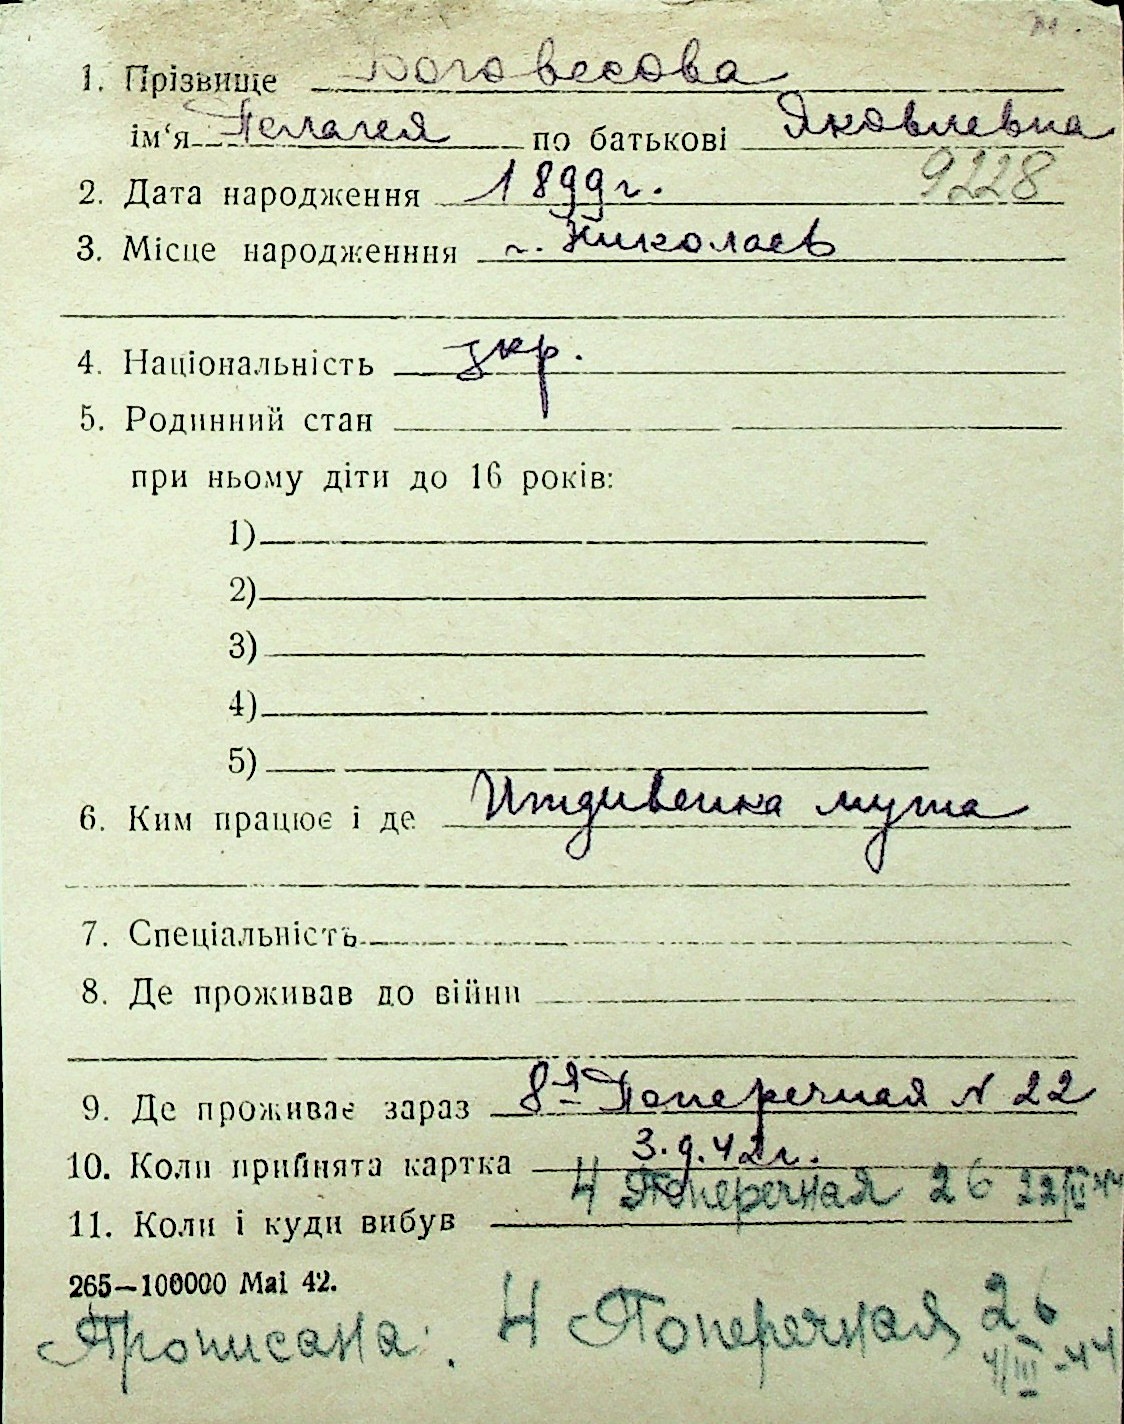 м.
1. Прізвище Боговесова
ім'я Пелагея по батькові Яковлевна
9228
2. Дата народження 1899г.
3. Місце народженння г. Николаев
4. Національність укр.
5. Родинний стан
при ньому діти до 16 років:
1)
2)
3)
4)
5)
6. Ким працює і де Иждивенка мужа
7. Спеціальність
8. Де проживав до війни
9. Де проживає зараз 8я Поперечная N 22
10. Коли прийнята картка 3.9.42г.
4 Поперечная 26 22/II 44
11. Коли і куди вибув
265—100000 Mai 42.
Прописана: 4 Поперечная 26
4/III-44